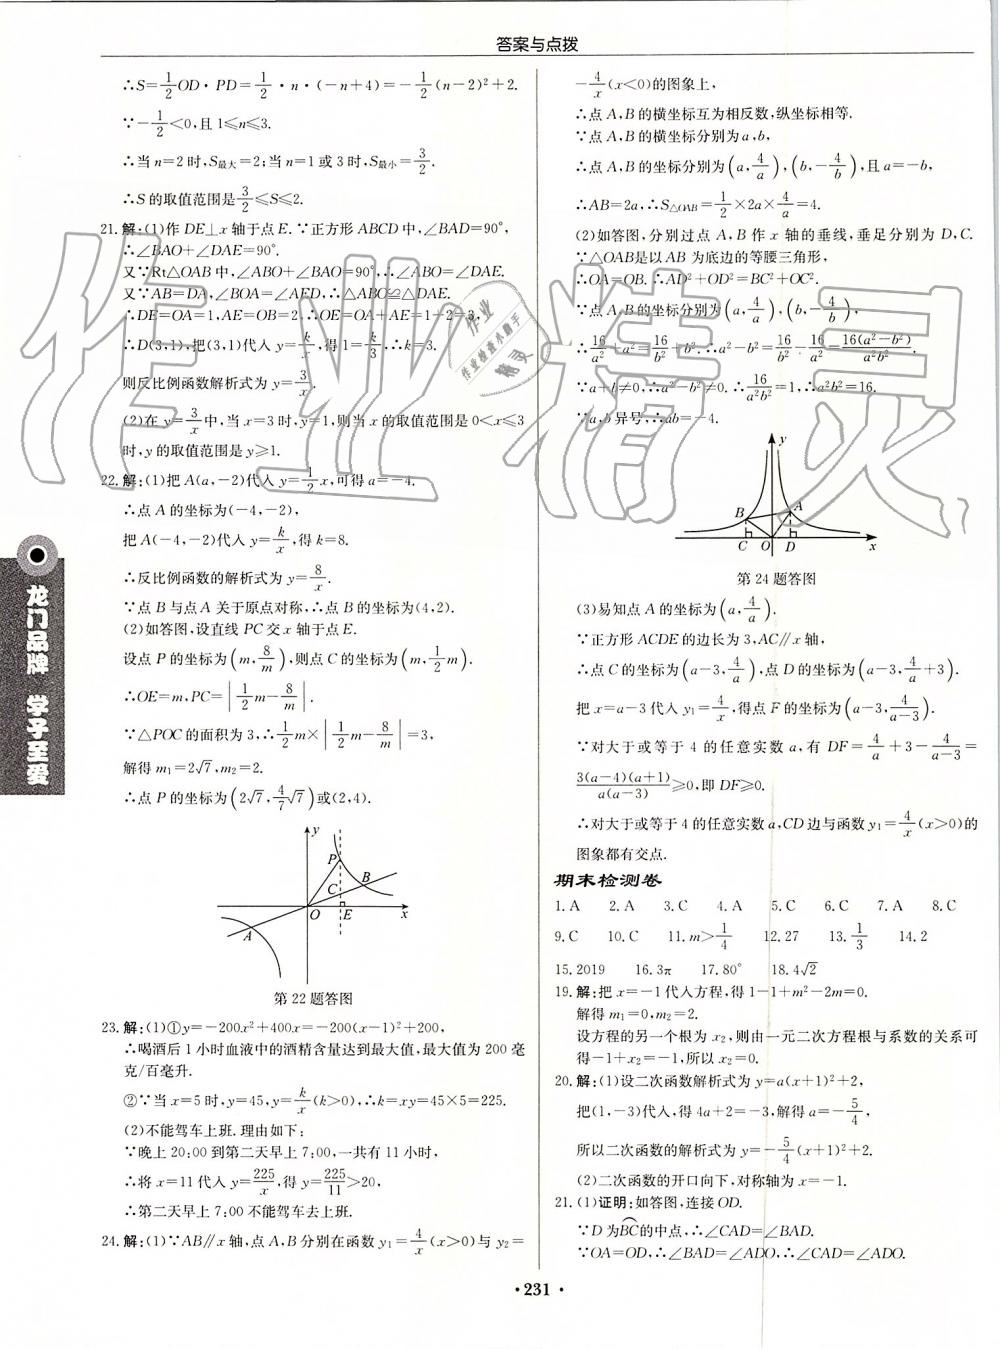 答案与点拨
∴S=1/2 OD·PD=1/2·n·(-n+4)=-1/2(n-2)²+2.
∵-1/2<0,且1≤n≤3.
∴当n=2时,S最大=2;当n=1或3时,S最小=3/2.
∴S的取值范围是3/2≤S≤2.
21.解:(1)作DE⊥x轴于点E.∵正方形ABCD中,∠BAD=90°,
∴∠BAO+∠DAE=90°.
又∵Rt△OAB中,∠ABO+∠BAO=90°,∴∠ABO=∠DAE.
又∵AB=DA,∠BOA=∠AED,∴△ABO≌△DAE.
∴DE=OA=1,AE=OB=2.∴OE=OA+AE=1+2=3,
∴D(3,1),把(3,1)代入y=k/x,得1=k/3.∴k=3.
则反比例函数解析式为y=3/x.
(2)在y=3/x中,当x=3时,y=1,则当x的取值范围是0<x≤3
时,y的取值范围是y≥1.
22.解:(1)把A(a,-2)代入y=1/2 x,可得a=-4.
∴点A的坐标为(-4,-2),
把A(-4,-2)代入y=k/x,得k=8.
∴反比例函数的解析式为y=8/x.
∵点B与点A关于原点对称,∴点B的坐标为(4,2).
(2)如答图,设直线PC交x轴于点E.
设点P的坐标为(m,8/m),则点C的坐标为(m,1/2 m).
∴OE=m,PC=|1/2 m-8/m|.
∵△POC的面积为3,∴1/2 m×|1/2 m-8/m|=3,
解得m₁=2√7,m₂=2.
∴点P的坐标为(2√7,4/7√7)或(2,4).
y
P
C
B
O
E
x
A
第22题答图
23.解:(1)①y=-200x²+400x=-200(x-1)²+200,
∴喝酒后1小时血液中的酒精含量达到最大值,最大值为200毫
克/百毫升.
②∵当x=5时,y=45,y=k/x(k>0),∴k=xy=45×5=225.
(2)不能驾车上班.理由如下:
∵晚上20:00到第二天早上7:00,一共有11小时,
∴将x=11代入y=225/x,得y=225/11>20,
∴第二天早上7:00不能驾车去上班.
24.解:(1)∵AB∥x轴,点A,B分别在函数y₁=4/x(x>0)与y₂=
-4/x(x<0)的图象上,
∴点A,B的横坐标互为相反数,纵坐标相等.
∵点A,B的横坐标分别为a,b,
∴点A,B的坐标分别为(a,4/a),(b,-4/b),且a=-b,
∴AB=2a,∴S△OAB=1/2×2a×4/a=4.
(2)如答图,分别过点A,B作x轴的垂线,垂足分别为D,C.
∵△OAB是以AB为底边的等腰三角形,
∴OA=OB.∴AD²+OD²=BC²+OC².
∵点A,B的坐标分别为(a,4/a),(b,-4/b),
∴16/a²+a²=16/b²+b².∴a²-b²=16(a²-b²)/a²b².
∵a+b≠0,∴a²-b²≠0.∴16/a²b²=1,∴a²b²=16.
∵a,b异号,∴ab=-4.
y
B
A
C
O
D
x
第24题答图
(3)易知点A的坐标为(a,4/a).
∵正方形ACDE的边长为3,AC∥x轴,
∴点C的坐标为(a-3,4/a),点D的坐标为(a-3,4/a+3).
把x=a-3代入y₁=4/x,得点F的坐标为(a-3,4/(a-3)).
∵对大于或等于4的任意实数a,有DF=4/a+3-4/(a-3)=
3(a-4)(a+1)/a(a-3)≥0,即DF≥0.
∴对大于或等于4的任意实数a,CD边与函数y₁=4/x(x>0)的
图象都有交点.
期末检测卷
1.A 2.A 3.C 4.A 5.C 6.C 7.A 8.C
9.C 10.C 11.m>1/4 12.27 13.1/3 14.2
15.2019 16.3π 17.80° 18.4√2
19.解:把x=-1代入方程,得1-1+m²-2m=0.
解得m₁=0,m₂=2.
设方程的另一个根为x₂,则由一元二次方程根与系数的关系可
得-1+x₂=-1,所以x₂=0.
20.解:(1)设二次函数解析式为y=a(x+1)²+2,
把(1,-3)代入,得4a+2=-3,解得a=-5/4,
所以二次函数的解析式为y=-5/4(x+1)²+2.
(2)二次函数的开口向下,对称轴为x=-1.
21.(1)证明:如答图,连接OD.
∵D为BC的中点,∴∠CAD=∠BAD.
∵OA=OD,∴∠BAD=∠ADO,∴∠CAD=∠ADO.
·231·
龙门品牌 学子至爱
作业精灵
作业
作业检查小助手
精灵